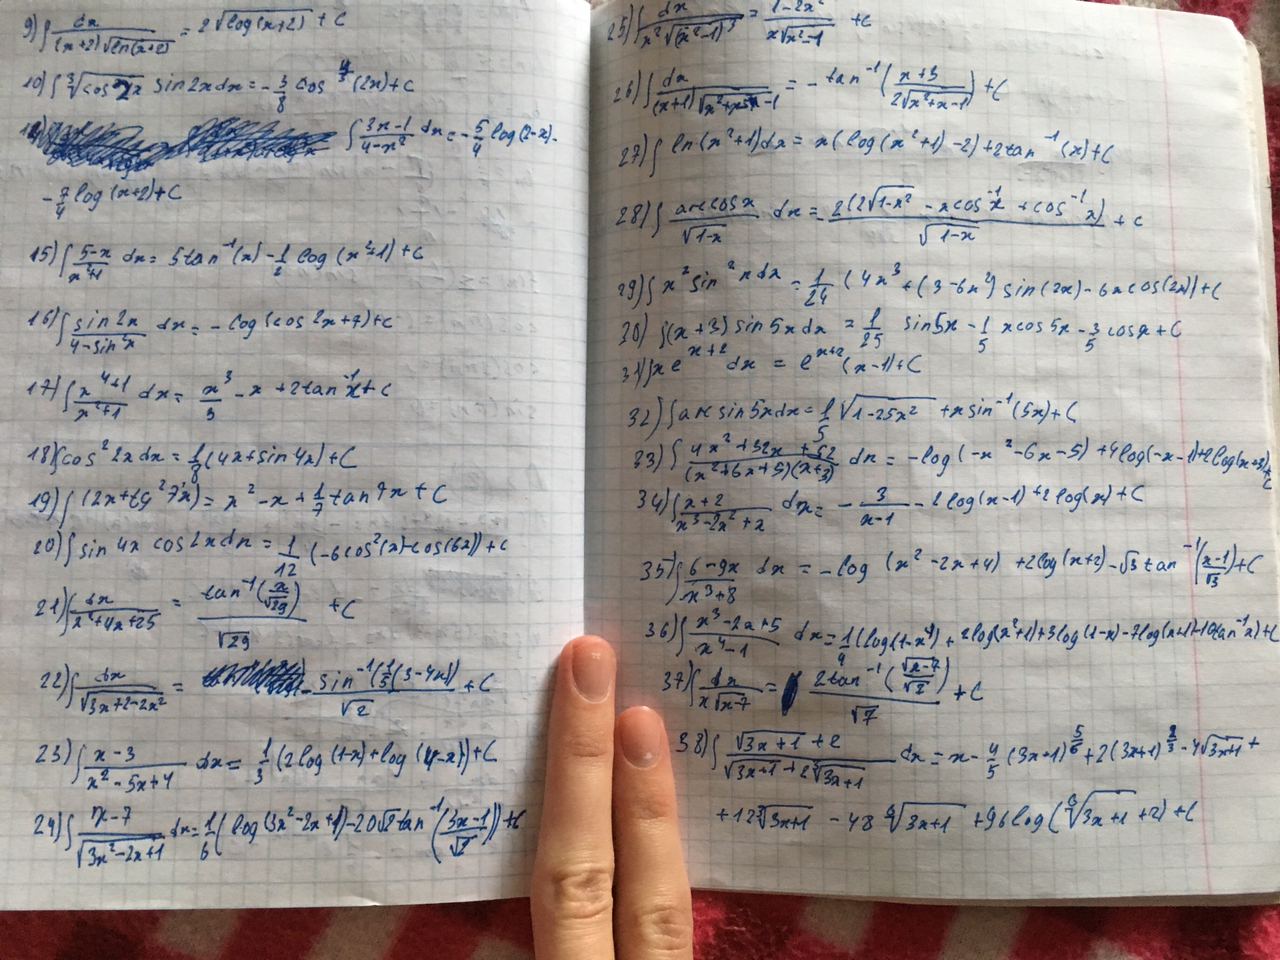 9) ∫ dx/((x+2)√ln(x+2)) = 2√log(x+2) + C
10) ∫ ∛cos 2x sin2x dx = -3/8 cos^(4/3) (2x) + C
∫ (3x-1)/(4-x²) dx = -5/4 log(2-x) -
-7/4 log(x+2) + C
15) ∫ (5-x)/(x²+1) dx = 5tan⁻¹(x) - 1/2 log(x²+1) + C
16) ∫ sin2x/(4-sin²x) dx = -log(cos2x+7) + C
17) ∫ (x⁴+1)/(x²+1) dx = x³/3 - x + 2tan⁻¹x + C
18) ∫ cos²2x dx = 1/8 (4x+sin4x) + C
19) ∫ (2x+tg²7x) = x² - x + 1/7 tan7x + C
20) ∫ sin4x cos2x dx = 1/12 (-6cos²(x)-cos(6x)) + C
21) ∫ dx/(x²+4x+25) = tan⁻¹(x/√29)/√29 + C
22) ∫ dx/√(3x+2-2x²) = - sin⁻¹(1/5(3-4x))/√2 + C
23) ∫ (x-3)/(x²-5x+4) dx = 1/3 (2log(1-x)+log(4-x)) + C
24) ∫ (x-7)/√(3x²-2x+1) dx = 1/6 (log(3x²-2x+1)-20√2 tan⁻¹((3x-1)/√2)) + C
25) ∫ dx/(x²√(x²-1)³) = (1-2x²)/(x√(x²-1)) + C
26) ∫ dx/((x+1)√(x²+x-1)) = -tan⁻¹((x+3)/(2√(x²+x-1))) + C
27) ∫ ln(x²+1)dx = x(log(x²+1)-2)+2tan⁻¹(x)+C
28) ∫ arccosx/√(1-x) dx = 2(2√(1-x²) - xcos⁻¹x + cos⁻¹x)/√(1-x) + C
29) ∫ x² sin²x dx = 1/24 (4x³+(3-6x²) sin(2x)-6xcos(2x)) + C
30) ∫ (x+3) sin5x dx = 1/25 sin5x - 1/5 xcos5x - 3/5 cosx + C
31) ∫ xe^(x+2) dx = e^(x+2) (x-1) + C
32) ∫ arcsin5xdx = 1/5 √(1-25x²) + xsin⁻¹(5x) + C
33) ∫ (4x²+32x+52)/((x²+6x+5)(x+3)) dx = -log(-x²-6x-5)+4log(-x-1)+2log(x+3)+C
34) ∫ (x+2)/(x³-2x²+x) dx = -3/(x-1) - 2log(x-1)+2log(x)+C
35) ∫ (6-9x)/(x³+8) dx = -log(x²-2x+4) + 2log(x+2)-√3 tan⁻¹((x-1)/√3)+C
36) ∫ (x³-2x+5)/(x⁴-1) dx = 1/4 (log(1-x⁴) + 2log(x²+1)+3log(1-x)-7log(x+1)-10tan⁻¹x)+C
37) ∫ dx/(x√(x-7)) = 2tan⁻¹(√(x-7)/√2)/√7 + C
38) ∫ (√(3x+1)+2)/(√(3x+1)+2∛(3x+1)) dx = x - 4/5 (3x+1)^(5/6) + 2(3x+1)^(2/3) - 4√(3x+1) +
+12∛(3x+1) - 48 ⁶√(3x+1) + 96log(⁶√(3x+1)+2) + C